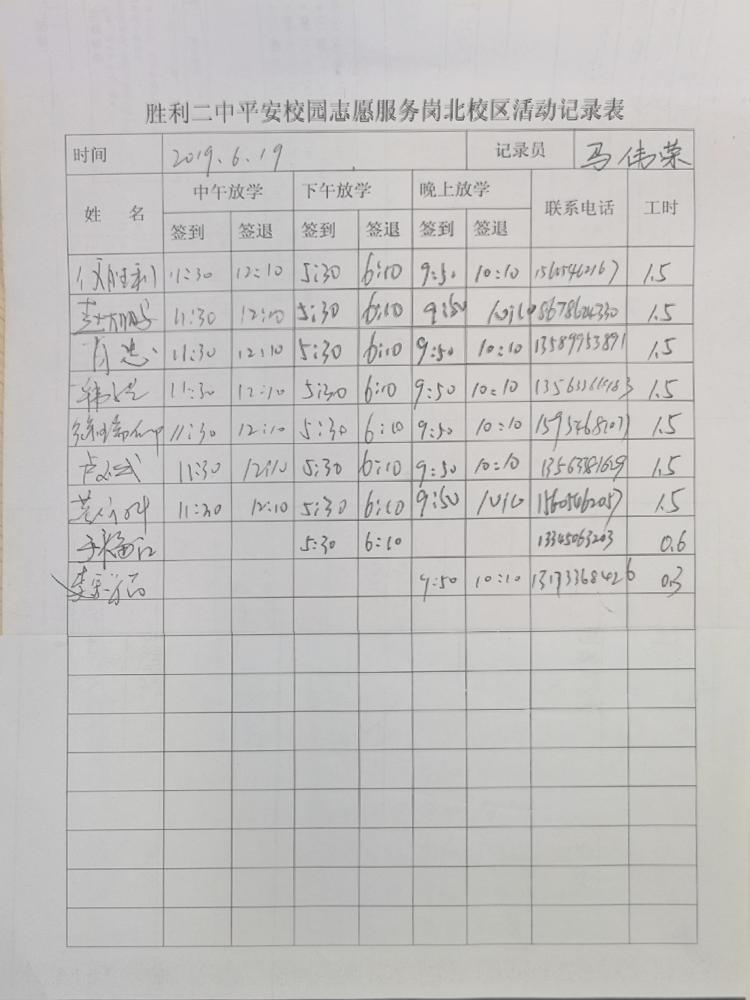 胜利二中平安校园志愿服务岗北校区活动记录表
时间 2019.6.19 记录员 马伟荣
姓 名 中午放学 下午放学 晚上放学 联系电话 工时
签到 签退 签到 签退 签到 签退
胜利 11:30 12:10 5:30 6:10 9:50 10:10 1.5
11:30 12:10 5:30 6:10 9:50 10:10 1.5
肖忠 11:30 12:10 5:30 6:10 9:50 10:10 13589953891 1.5
韩 11:30 12:10 5:30 6:10 9:50 10:10 1.5
徐 11:30 12:10 5:30 6:10 9:50 10:10 1.5
卢 11:30 12:10 5:30 6:10 9:50 10:10 1.5
11:30 12:10 5:30 6:10 9:50 10:10 15605462057 1.5
5:30 6:10 13345063203 0.6
李 9:50 10:10 13173368426 0.3